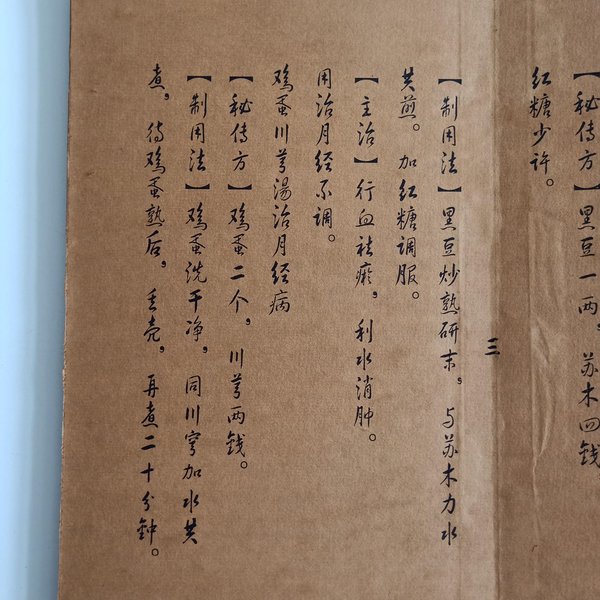 【秘传方】黑豆一两，苏木四钱，
红糖少许。
三
【制用法】黑豆炒熟研末，与苏木力水
共煎。加红糖调服。
【主治】行血祛瘀，利水消肿。
用治月经不调。
鸡蛋川芎湯治月经病
【秘传方】鸡蛋二个，川芎两钱。
【制用法】鸡蛋洗干净，同川穹加水共
煮，待鸡蛋熟后，去壳，再煮二十分鈡。